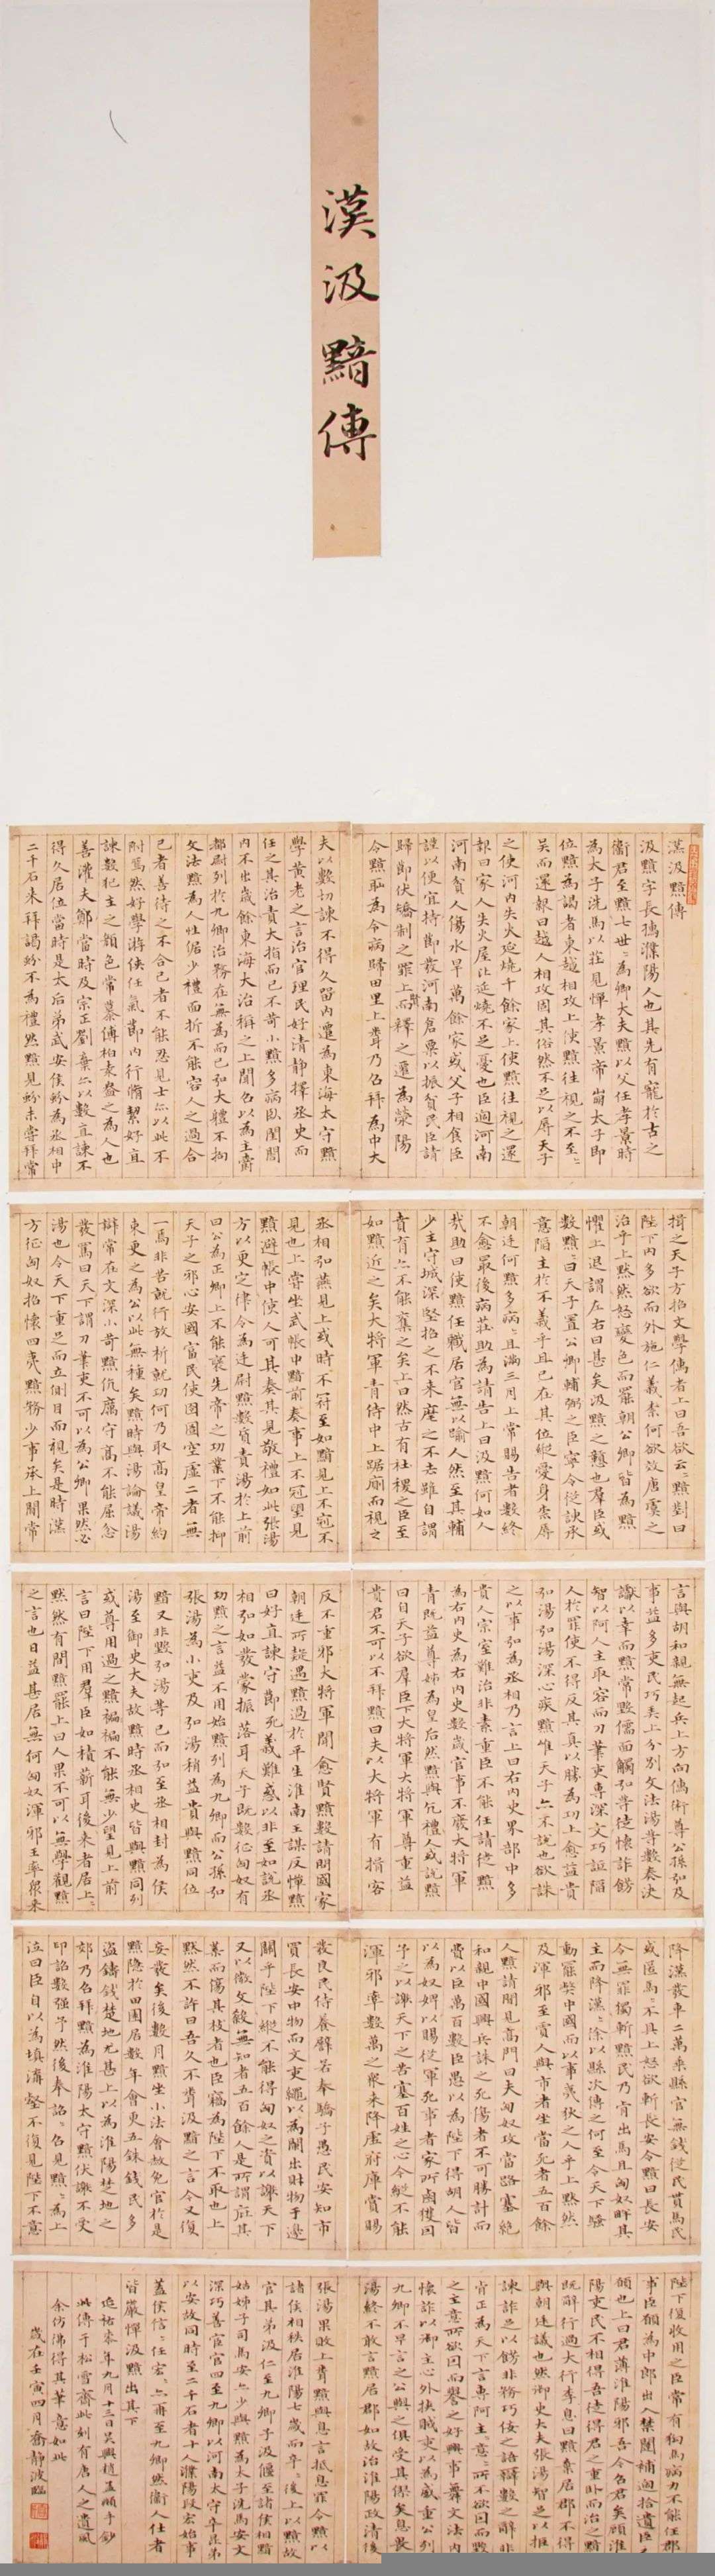 漢汲黯傳
漢汲黯傳
汲黯字長孺濮陽人也其先有寵於古之
衞君至黯七世〻為卿大夫黯以父任孝景時
為太子洗馬以莊見憚孝景帝崩太子即
位黯為謁者東越相攻上使黯往視之不至〻
吳而還報曰越人相攻固其俗然不足以辱天子
之使河內失火延燒千餘家上使黯往視之還
報曰家人失火屋比延燒不足憂也臣過河南
河南貧人傷水旱萬餘家或父子相食臣
謹以便宜持節發河南倉粟以振貧民臣請
歸節伏矯制之罪上賢而釋之遷為滎陽
令黯恥為令病歸田里上聞乃召拜為中大
夫以數切諫不得久留內遷為東海太守黯
學黃老之言治官理民好清靜擇丞史而
任之其治責大指而已不苛小黯多病臥閨閤
內不出歲餘東海大治稱之上聞召以為主爵
都尉列於九卿治務在無為而已弘大體不拘
文法黯為人性倨少禮面折不能容人之過合
己者善待之不合己者不能忍見士亦以此不
附焉然好學游俠任氣節內行脩絜好直
諫數犯主之顏色常慕傅柏袁盎之為人也
善灌夫鄭當時及宗正劉棄亦以數直諫不
得久居位當時是太后弟武安侯蚡為丞相中
二千石來拜謁蚡不為禮然黯見蚡未嘗拜常
揖之天子方招文學儒者上曰吾欲云〻黯對曰
陛下內多欲而外施仁義柰何欲效唐虞之
治乎上默然怒變色而罷朝公卿皆為黯
懼上退謂左右曰甚矣汲黯之戇也羣臣或
數黯〻曰天子置公卿輔弼之臣寧令從諛承
意陷主於不義乎且已在其位縱愛身柰辱
朝廷何黯多病〻且滿三月上常賜告者數終
不愈最後病莊助為請告上曰汲黯何如人
哉助曰使黯任職居官無以踰人然至其輔
少主守城深堅招之不來麾之不去雖自謂
賁育亦不能奪之矣上曰然古有社稷之臣至
如黯近之矣大將軍青侍中上踞廁而視之
丞相弘燕見上或時不冠至如黯見上不冠不
見也上嘗坐武帳中黯前奏事上不冠望見
黯避帳中使人可其奏其見敬禮如此張湯
方以更定律令為廷尉黯數質責湯於上前
曰公為正卿上不能襃先帝之功業下不能抑
天子之邪心安國富民使囹圄空虛二者無
一焉非苦就行放析就功何乃取高皇帝約
束更之為公以此無種矣黯時與湯論議湯
辯常在文深小苛黯伉厲守高不能屈忿
發罵曰天下謂刀筆吏不可以為公卿果然必
湯也令天下重足而立側目而視矣是時漢
方征匈奴招懷四夷黯務少事承上間常
言與胡和親無起兵上方向儒術尊公孫弘及
事益多吏民巧弄上分別文法湯等數奏決
讞以幸而黯常毀儒面觸弘等徒懷詐飾
智以阿人主取容而刀筆吏專深文巧詆陷
人於罪使不得反其真以勝為功上愈益貴
弘湯弘湯深心疾黯惟天子亦不說也欲誅
之以事弘為丞相乃言上曰右內史界部中多
貴人宗室難治非素重臣不能任請徙黯
為右內史為右內史數歲官事不廢大將軍
青既益尊姊為皇后然黯與亢禮人或說黯
曰自天子欲羣臣下大將軍大將軍尊重益
貴君不可以不拜黯曰夫以大將軍有揖客
反不重邪大將軍聞愈賢黯數請問國家
朝廷所疑遇黯過於平生淮南王謀反憚黯
曰好直諫守節死義難惑以非至如說丞
相弘如發蒙振落耳天子既數征匈奴有
功黯之言益不用始黯列為九卿而公孫弘
張湯為小吏及弘湯稍益貴與黯同位
黯又非毀弘湯等已而弘至丞相封為侯
湯至御史大夫故黯時丞相史皆與黯同列
或尊用過之黯褊褊不能無少望見上前
言曰陛下用羣臣如積薪耳後來者居上〻
默然有間黯罷上曰人果不可以無學觀黯
之言也日益甚居無何匈奴渾邪王率眾來
降漢發車二萬乘縣官無錢從民貰馬民
或匿馬〻不具上怒欲斬長安令黯曰長安
令無罪獨斬黯民乃肯出馬且匈奴畔其
主而降漢〻徐以縣次傳之何至令天下騷
動罷獘中國而以事夷狄之人乎上默然
及渾邪至賈人與市者坐當死者五百餘
人黯請間見高門曰夫匈奴攻當路塞絕
和親中國興兵誅之死傷者不可勝計而
費以臣萬百數臣愚以為陛下得胡人皆
以為奴婢以賜從軍死事者家所鹵獲因
予之以謝天下之苦塞百姓之心今縱不能
渾邪率數萬之眾來降虛府庫賞賜
發良民侍養譬若奉驕子愚民安知市
買長安中物而文吏繩以為闌出財物于邊
關乎陛下縱不能得匈奴之資以謝天下
又以微文殺無知者五百餘人是所謂庇其
葉而傷其枝者也臣竊為陛下不取也上
默然不許曰吾久不聞汲黯之言今又復
妄發矣後數月黯坐小法會赦免官於是
黯隱於田園居數年會更五銖錢民多
盜鑄錢楚地尤甚上以為淮陽楚地之
郊乃召拜黯為淮陽太守黯伏謝不受
印詔數強予然後奉詔〻召見黯〻為上
泣曰臣自以為填溝壑不復見陛下不意
陛下復收用之臣常有狗馬病力不能任郡
事臣願為中郎出入禁闥補過拾遺臣
願也上曰君薄淮陽邪吾今召君矣顧淮
陽吏民不相得吾徒得君之重臥而治之黯
既辭行過大行李息曰黯棄居郡不得
與朝廷議也然御史大夫張湯智足以拒
諫詐足以飾非務巧佞之語辯數之辭非
肯正為天下言專阿主意所不欲因而毀
之主意所欲因而譽之好興事舞文法內
懷詐以御主心外挾賊吏以為威重公列
九卿不早言之公與之俱受其僇矣息畏
湯終不敢言黯居郡如故治淮陽政清後
張湯果敗上聞黯與息言抵息罪令黯以
諸侯相秩居淮陽七歲而卒〻後上以黯故
官其弟汲仁至九卿子汲偃至諸侯相黯
姑姊子司馬安亦少與黯為太子洗馬安文
深巧善宦官四至九卿以河南太守卒昆弟
以安故同時至二千石者十人濮陽段宏始事
蓋侯信〻任宏〻亦再至九卿然衞人仕者
皆嚴憚汲黯出其下
延祐柒年九月十三日吳興趙孟頫手鈔
此傳于松雪齋此刻有唐人之遺風
余仿佛得其筆意如此
歲在壬寅四月喬靜波臨